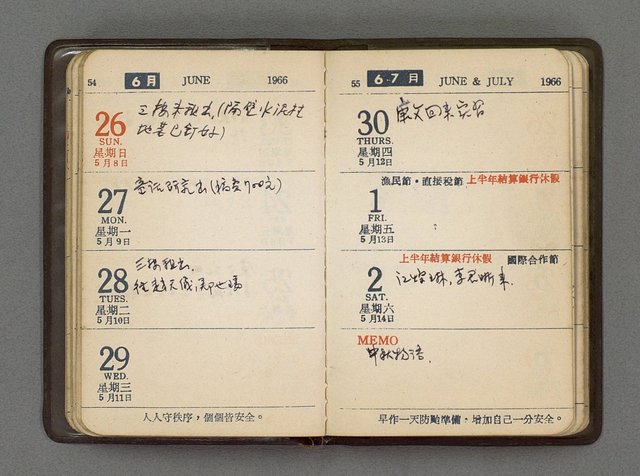 54 6月 JUNE 1966
26
SUN.
星期日
5月8日
三樓未租出(隔壁水泥柱
地基已釘好)
27
MON.
星期一
5月9日
28
TUES.
星期二
5月10日
三樓租出.
29
WED.
星期三
5月11日
人人守秩序，個個皆安全。
55 6-7月 JUNE & JULY 1966
30
THURS.
星期四
5月12日
漁民節・直接稅節 上半年結算銀行休假
1
FRI.
星期五
5月13日
上半年結算銀行休假 國際合作節
2
SAT.
星期六
5月14日
MEMO
中秋物語.
早作一天防颱準備，增加自己一分安全。